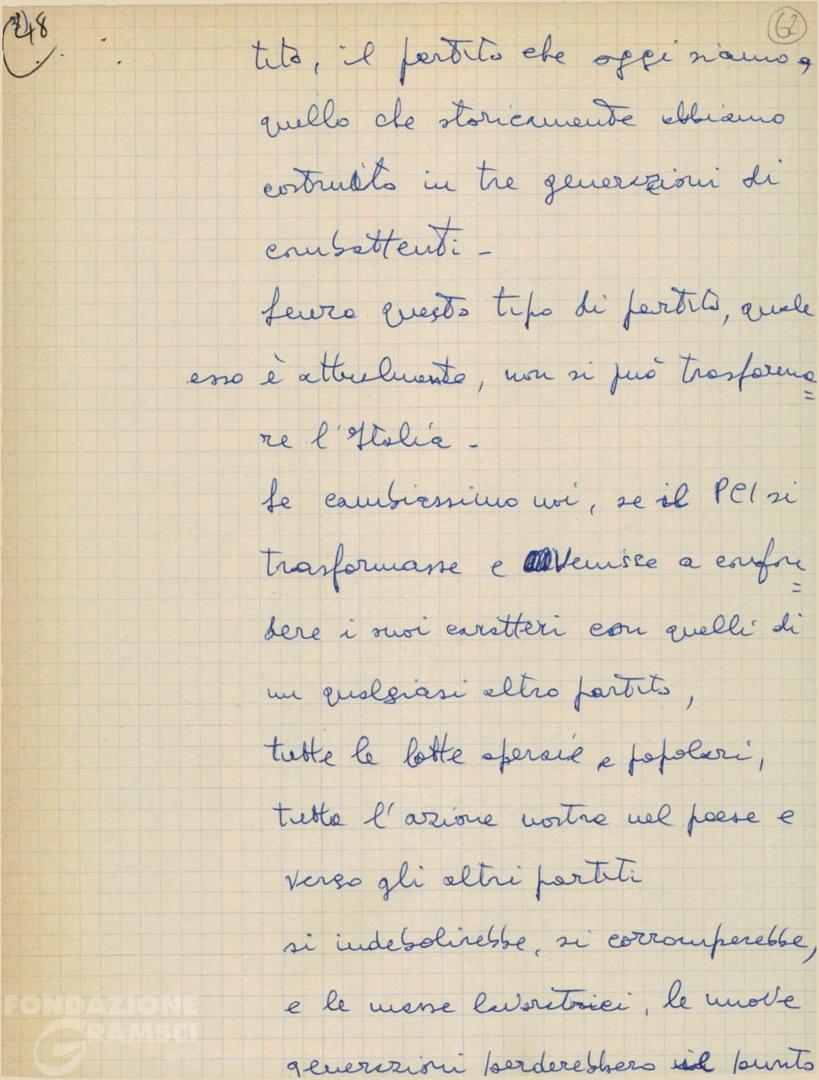 48
62
tito, il partito che oggi siamo e
quello che storicamente abbiamo
costruito in tre generazioni di
combattenti -
Senza questo tipo di partito, quale
esso è attualmente, non si può trasforma=
re l'Italia -
Se cambiassimo noi, se il PCI si
trasformasse e venisse a confon=
dere i suoi caratteri con quelli di
un qualsiasi altro partito,
tutte le lotte operaie e popolari,
tutta l'azione nostra nel paese e
verso gli altri partiti
si indebolirebbe, si corromperebbe,
e le masse lavoratrici, le nuove
generazioni perderebbero il punto
FONDAZIONE
GRAMSCI